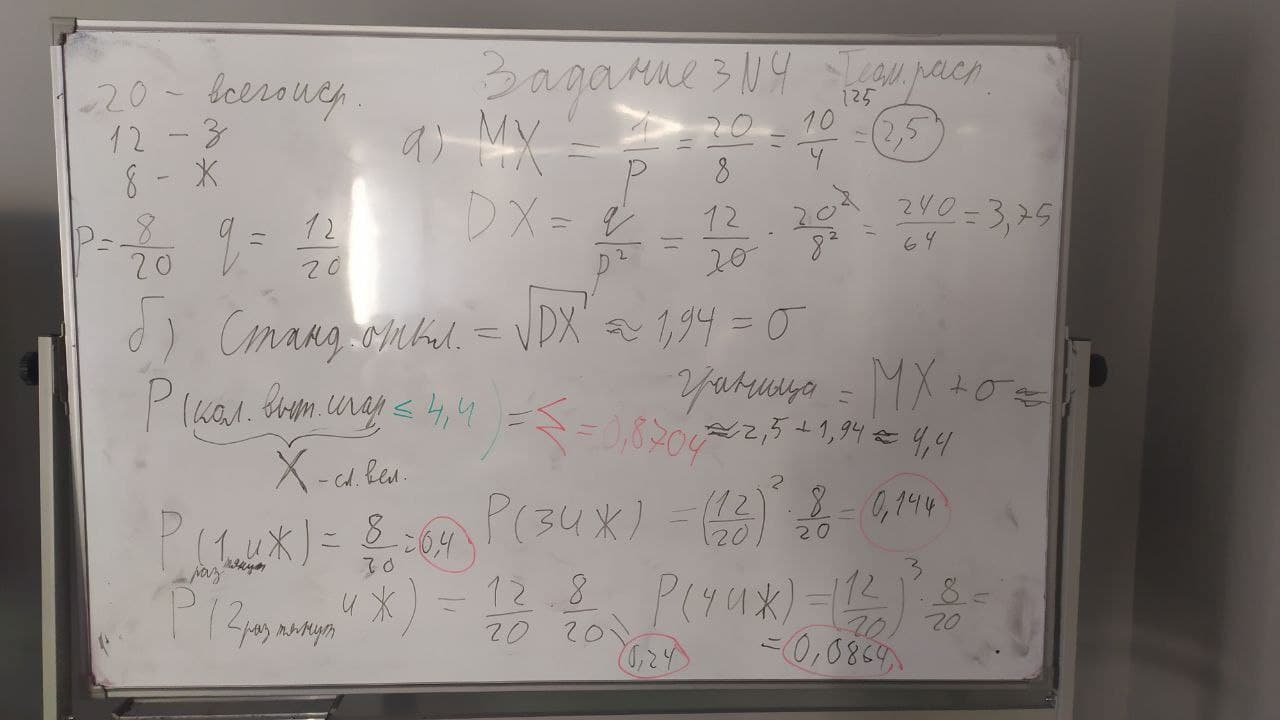 Задание 3 N4 Геом. расп.
20 - всего исp.
12 - З
8 - Ж
P = 8/20 q = 12/20
а) MX = 1/P = 20/8 = 10/4 = 2,5
125
DX = q/p² = 12/20 · 20²/8² = 240/64 = 3,75
б) Станд. откл. = √DX ≈ 1,94 = σ
граница = MX + σ ≈
≈ 2,5 + 1,94 ≈ 4,4
P(кол. выт. шар ≤ 4,4) = Σ = 0,8704
X - сл. вел.
P(1 раз тянут и Ж) = 8/20 = 0,4
P(3 и Ж) = (12/20)² · 8/20 = 0,144
P(2 раз тянут и Ж) = 12/20 · 8/20
0,24
P(4 и Ж) = (12/20)³ · 8/20 =
= 0,0864